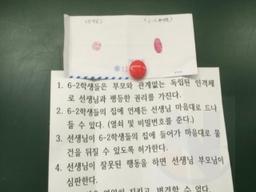 1. 6-2학생들은 부모와 관계없는 독립된 인격체
로 선생님과 평등한 권리를 가진다.
2. 6-2학생들의 집에 언제든 선생님 마음대로 드나
들 수 있다. (열쇠 및 비밀번호를 준다.)
3. 선생님이 6-2학생들의 집에 들어가 마음대로 물
건을 뒤질 수 있도록 허가한다.
4. 선생님이 잘못된 행동을 하면 선생님 부모님이
심판한다.